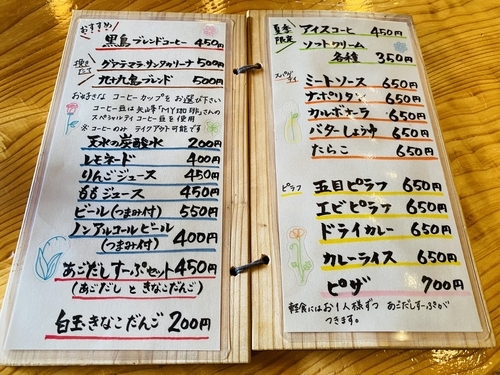 おすすめ
黒島ブレンドコーヒー 450円
挽きたて
グアテマラ・サンタカタリーナ 500円
九十九島ブレンド 500円
お好きなコーヒーカップをお選び下さい
コーヒー豆は大山寺「MY珈琲」さんの
スペシャルティコーヒー豆を使用
※コーヒーのみテイクアウト可能です
天水の炭酸水 200円
レモネード 400円
りんごジュース 450円
ももジュース 450円
ビール(つまみ付) 550円
ノンアルコールビール
(つまみ付) 400円
あごだしすーぷセット 450円
(あごだしときなこだんご)
白玉きなこだんご 200円
夏季限定
アイスコーヒ 450円
ソフトクリーム
各種 350円
スパゲッティ
ミートソース 650円
ナポリタン 650円
カルボナーラ 650円
バターしょうゆ 650円
たらこ 650円
ピラフ
五目ピラフ 650円
エビピラフ 650円
ドライカレー 650円
カレーライス 650円
ピザ 700円
軽食にはお1人様ずつ あごだしすーぷが
つきます。